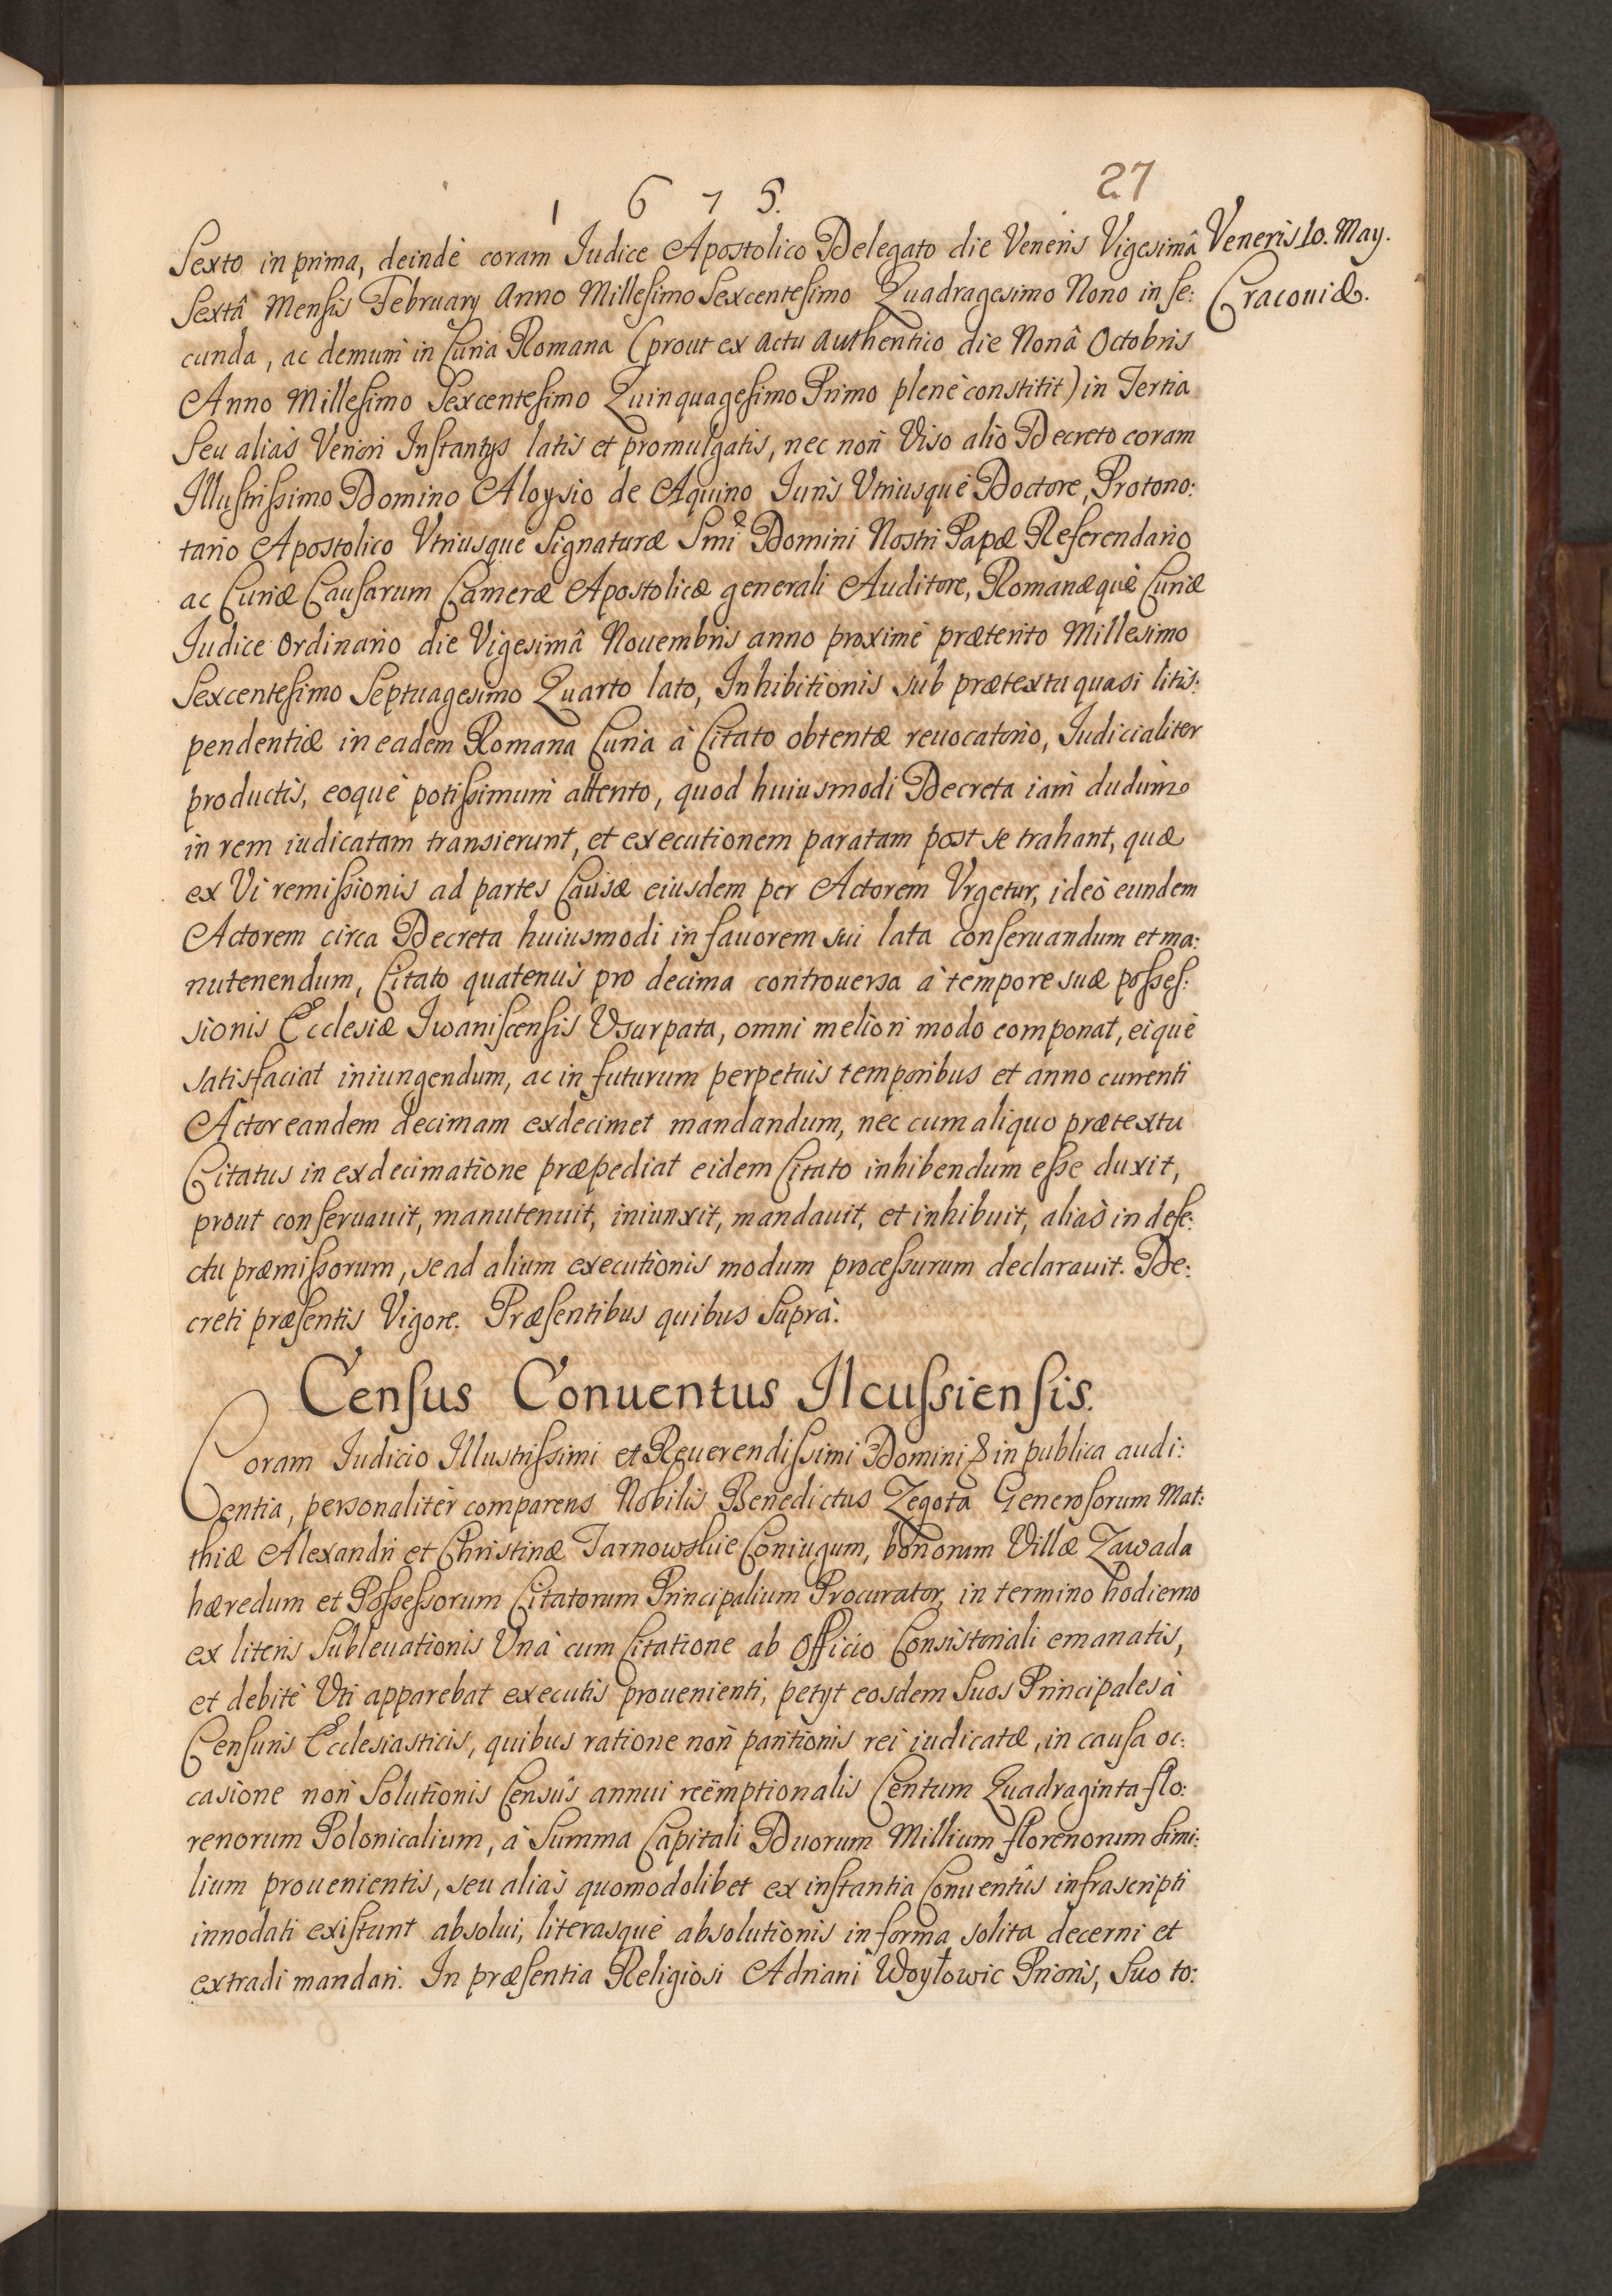 27
1 6 7 5.
Veneris 10. May.
Cracouiæ.
Sexto in prima, deindè coram Iudice Apostolico Delegato die Veneris Vigesimâ
Sextâ Mensis February Anno Millesimo Sexcentesimo Quadragesimo Nono in se:
cunda, ac demum̀ in Curia Romana (prout ex actu authentico die Nonâ Octobris
Anno Millesimo Sexcentesimo Quinquagesimo Primo plenè constitit) in Tertia
Seu aliàs Veriori Instantys latis et promulgatis, nec non̄ Viso aliò Decreto coram
Illustrissimo Domino Aloysio de Aquino Iuris Vtriusquè Doctore, Protono:
tario Apostolico Vtriusquè Signaturæ Smi Domini Nostri Papæ Referendario
ac Curiæ Causarum Cameræ Apostolicæ generali Auditore, Romanæquè Curiæ
Iudice Ordinario die Vigesimâ Nouembris anno proximè præterito Millesimo
Sexcentesimo Septuagesimo Quarto lato, Inhibitionis sub prætextu quasi litis:
pendentiæ in eadem Romana Curia à Citato obtentæ reuocatorio, Iudicialiter
productis, eoquè potissimum̀ attento, quod huiusmodi Decreta iam̀ dudum̀
in rem iudicatam transierunt, et executionem paratam post se trahant, quæ
ex Vi remissionis ad partes Causæ eiusdem per Actorem Vrgetur, ideò eundem
Actorem circa Decreta huiusmodi in fauorem sui lata conseruandum et ma:
nutenendum, Citato quatenùs pro decima controuersa à tempore suæ posses:
sionis Ecclesiæ Iwaniscensis Vsurpata, omni meliori modo componat, eiquè
satisfaciat iniungendum, ac in futurum perpetuis temporibus et anno currenti
Actor eandem decimam exdecimet mandandum, nec cum aliquo prætextu
Citatus in exdecimatione præpediat eidem Citato inhibendum esse duxit,
prout conseruauit, manutenuit, iniunxit, mandauit, et inhibuit, aliàs in defe:
ctu præmissorum, se ad alium executionis modum processurum declarauit. De:
creti præsentis Vigore. Præsentibus quibus Suprà.
Census Conuentus Ilcussiensis.
Coram Iudicio Illustrissimi et Reuerendissimi Domini & in publica audi:
entia, personalitèr comparens Nobilis Benedictus Zegota Generosorum Mat:
thiæ Alexandri et Christinæ Tarnowskie Coniugum, bonorum Villæ Zawada
hæredum et Possessorum Citatorum Principalium Procurator, in termino hodierno
ex literis Subleuationis Vnà cum Citatione ab Officio Consistoriali emanatis,
et debitè Vti apparebat executis prouenienti, petyt eosdem Suos Principales à
Censuris Ecclesiasticis, quibus ratione non̄ paritionis rei iudicatæ, in causa oc:
casione non̄ Solutionis Censûs annui reëmptionalis Centum Quadraginta flo:
renorum Polonicalium, à Summa Capitali Duorum Millium florenorum simi:
lium prouenientis, seu aliàs quomodolibet ex instantia Conuentûs infrascripti
innodati existunt absolui, literasquè absolutionis in forma solita decerni et
extradi mandari. In præsentia Religiosi Adriani Woytowic Prioris, Suo to: